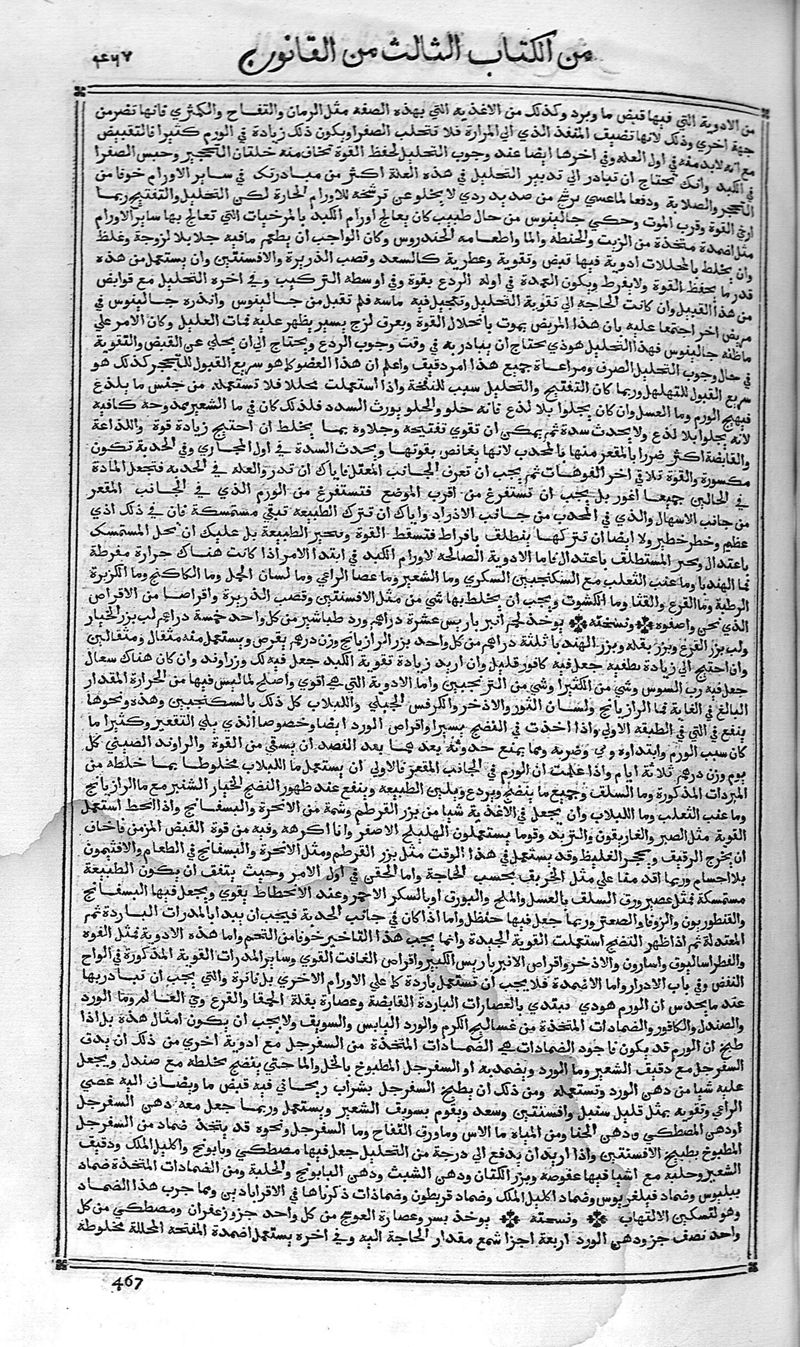 من الكتاب الثالث من القانون
٤٦٧
من الادوية التي فيها قبض ما وبرد وكذلك من الاغذية التي بهذه الصفه مثل الرمان والتفاح والكمثري فانها تضر من
جهة اخري وذلك لانها تضيف المنفذ الذي الي المرارة فلا تتحلب الصفرا ويكون ذلك زيادة في الورم كثيرا فالتقبيض
مع انه لابد منه في اول العله وفي اخرها ايضا عند وجوب التحليل لحفظ القوة تخاف منه خلتان التحجير وحبس الصفرا
في الكبد وانك تحتاج ان تبادر الي تدبير التحليل في هذه العلة اكثر من مبادرتك في ساير الاورام خوفا من
التحجر والصلابة ودفعا لما عسي يرشح من صديد ردي لا يخلو عن ترشحه للاورام الحارة لكن التحليل والتفتيح ربما
ارخي القوة وقرب الموت وحكي جالينوس من حال طبيب كان يعالج اورام الكبد بالمرخيات التي تعالج بها ساير الاورام
مثل اضمدة متخذة من الزيت والحنطه والما واطعامه الخندروس وكان الواجب ان يطعم مافيه جلا بلا لزوجة وغلظ
وان يخلط بالمحللات ادوية فيها قبض وتقوية وعطرية كالسعد وقصب الذريرة والافسنتين وان يستعمل من هذه
قدر ما يحفظ القوة ولا يفرط ويكون العمدة في اوله الردع بقوة وفي اوسطه التركيب وفي اخره التحليل مع قوابض
من هذا القبيل وان كانت الحاجه الي تقوية التحليل وتعجيل فيه ماسه فلم تقبل من جالينوس وانذره جالينوس في
مريض اخر اجتمعا عليه بان هذا المريض يموت بانحلال القوة وبعرق لزج يسير يظهر عليه فمات العليل وكان الامر علي
ما ظنه جالينوس فهذا التحليل هو ذي يحتاج ان يبادر به في وقت وجوب الردع ويحتاج الي ان يخلي عن القبض والتقوية
في حال وجوب التحليل الصرف ومراعاة جميع هذا امر دقيق واعلم ان هذا العضو كما هو سريع القبول للتحجر كذلك هو
سريع القبول للتهلهل وربما كان التفتيح والتحليل سبب للنفخة واذا استعملت محللا فلا تستعمله من جنس ما يلذع
فيهيج الورم وما العسل وان كان يجلوا بلا لذع فانه حلو والحلو يورث السدد فلذلك كان في ما الشعير مندوحة كافيه
لانه يجلوا بلا لذع ولا يحدث سدة ثم يمكن ان تقوي تفتيحه وجلاوه بما يخلط ان احتيج زيادة قوة واللذاعة
والقابضة اكثر ضررا بالمقعر منها بالمحدب لانها يغافص بقوتها ويحدث السدة في اول المجاري وفي الحدبة تكون
مكسورة والقوة تلافي اخر الفوهات ثم يجب ان تعرف الجانب المعتل فاياك ان تدر والعله في الحدبه فتجعل المادة
في الحالين جميعا اغور بل يجب ان تستفرغ من اقرب الموضع فتستفرغ من الورم الذي في الجانب المقعر
من جانب الاسهال والذي في المحدب من جانب الادرار واياك ان تترك الطبيعه تبقي مستمسكة فان في ذلك اذي
عظيم وخطر خطير ولا ايضا ان تتركها ينطلق بافراط فتسقط القوة وتخير الطبيعة بل عليك ان تحل المستمسك
باعتدال وتحبس المستطلق باعتدال فاما الادوية الصالحه لاورام الكبد في ابتدا الامر اذا كانت هناك حرارة مفرطة
فما الهندبا وما عنب الثعلب مع السكنجبين السكري وما الشعير وما عصا الراعي وما لسان الحمل وما الكاكنج وما الكزبرة
الرطبة وما القرع والقثا وما الكشوت ويجب ان يخلط بها شي من مثل الافسنتين وقصب الذريرة واقراصا من الاقراص
الذي نحن واصفوه ونسخته يوخذ لحم انبر باريس عشرة دراهم ورد طباشير من كل واحد خمسة دراهم لب بزر الخيار
ولب بزر القرع وبزر بقله وبزر الهندبا ثلثة دراهم من كل واحد بزر الرازيانج وزن درهم يقرص ويستعمل منه مثقال ومثقالين
وان احتيج الي زيادة تطفيه جعل فيه كافور قليل وان اريد زيادة تقوية الكبد جعل فيه لك وزراوند وان كان هناك سعال
جعل فيه رب السوس وشي من الكثيرا وشي من الترنجبين واما الادوية التي هي اقوي واصلح لما ليس فيها من الحرارة المقدار
البالغ في الغاية فما الرازيانج ولسان الثور والاذخر والكرفس الجبلي واللبلاب كل ذلك بالسكنجبين وهذه ونحوها
ينفع في التي في الطبقه الاولي واذا اخذت في النضج يسيرا واقراص الورد ايضا وخصوصا الذي يلي التقعير وكثيرا ما
كان سبب الورم وابتداوه وهي وضربه ومما يمنع حدوثه بعد هما بعد الفصد ان يسقي من الفوة والراوند الصيني كل
يوم وزن درهم ثلاثة ايام واذا علمت ان الورم في الجانب المقعر فالاولي ان يستعمل ما اللبلاب مخلوطا بما خلطه من
المبردات المذكورة وما السلف وجميع ما ينضج ويردع ويلين الطبيعة وينفع عند ظهور النضج الخيار الشنبر مع ما الرازيانج
وما عنب الثعلب وما اللبلاب وان يجعل في الاغذية شيا من بزر القرطم وشمة من الانجرة والبسفانج واذا انحط استعمل
القوية مثل الصبر والغاريقون والتربد وقوما يستعملون الهليلج الاصفر وانا اكرهه وفيه من قوة القبض المزمن فاخاف
ان يخرج الرقيق ويحجر الغليظ وقد يستعمل في هذا الوقت مثل بزر القرطم ومثل الانجرة والبسفانج في الطعام والافتيمون
بلا اجسام وربما اقدمنا علي مثل الخربق بحسب الحاجة واما الحقن في اول الامر وحيث يتفق ان يكون الطبيعة
مستمسكة فمثل عصير ورق السلف بالعسل والملح والبورق او بالسكر الاحمر وعند الانحطاط يقوي ويجعل فيها البسفانج
والقنطوريون والزوفا والصعتر وربما جعل فيها حنظل واما اذا كان في جانب الحدبة فيجب ان يبدا بالمدرات الباردة ثم
المعتدلة ثم اذا ظهر النضج استعملت القوية الجيدة وانما يجب هذا التاخير خوفا من التحجر واما هذه الادوية فمثل الفوه
والفطراساليون واسارون والاذخر واقراص الانبر باريس الكبير واقراص الغافت القوي وساير المدرات القوية المذكورة في الواح
النفض وفي باب الادرار واما الاضمدة فلا يجب ان تستعمل باردة كما علي الاورام الاخري بل فاترة والتي يجب ان تبادر بها
عند ما يحدس ان الورم هو ذي يبتدي بالعصارات الباردة القابضة وعصارة بقلة الحمقا والقرع وحي العالم وما الورد
والصندل والكافور والضمادات المتخذة من عساليج الكرم والورد اليابس والسويق ولا يجب ان يكون امثال هذه بل اذا
طبخ ان الورم قد يكون فاجود الضمادات هي الضمادات المتخذة من السفرجل مع ادوية اخري من ذلك ان يدق
السفرجل مع دقيق الشعير وما الورد ويضمد به او السفرجل المطبوخ بالخل والما حتي ينضج تخلطه مع صندل ويجعل
عليه شيا من دهن الورد وتستعمله ومن ذلك ان يطبخ السفرجل بشراب ريحاني فيه قبض ما ويضاف اليه عصي
الراعي وتقويه بمثل قليل سنبل وافسنتين وسعد ويقوم بسويق الشعير ويستعمل وربما جعل معه دهن السفرجل
او دهن المصطكي ودهن الحنا ومن المياه ما الاس وما ورق التفاح وما السفرجل ونحوه قد يتخذ ضماد من السفرجل
المطبوخ بطبيخ الافسنتين واذا اريد ان يدفع الي درجة من التحليل جعل فيها مصطكي وبابونج واكليل الملك ودقيق
الشعير وحلبه مع اشيا فيها عفوصة وبزر الكتان ودهن الشبث ودهن البابونج والحلبة ومن الضمادات المتخذة ضماد
بيلبوس وضماد فيلغريوس وضماد اكليل الملك وضماد قريطون وضمادات ذكرناها في الاقرابادين ومما جرب هذا الضماد
وهو لتسكين الالتهاب ونسخته يوخذ بسر وعصارة العوسج من كل واحد جزو زعفران ومصطكي من كل
واحد نصف جزو دهن الورد اربعة اجزا شمع مقدار الحاجة اليه وفي اخره يستعمل اضمدة المفتحة المحللة مخلوطة
467